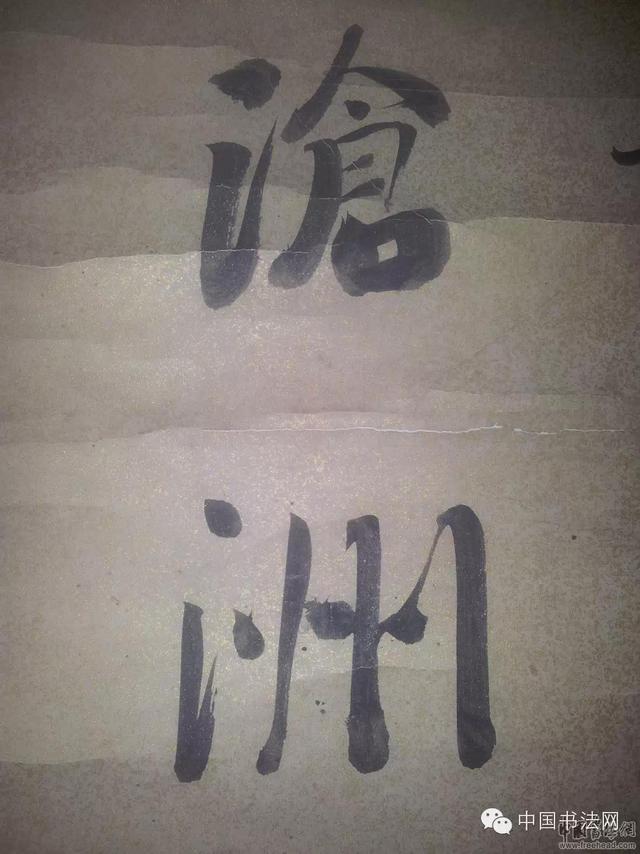 滄
洲
中国书法网
www.freehead.com